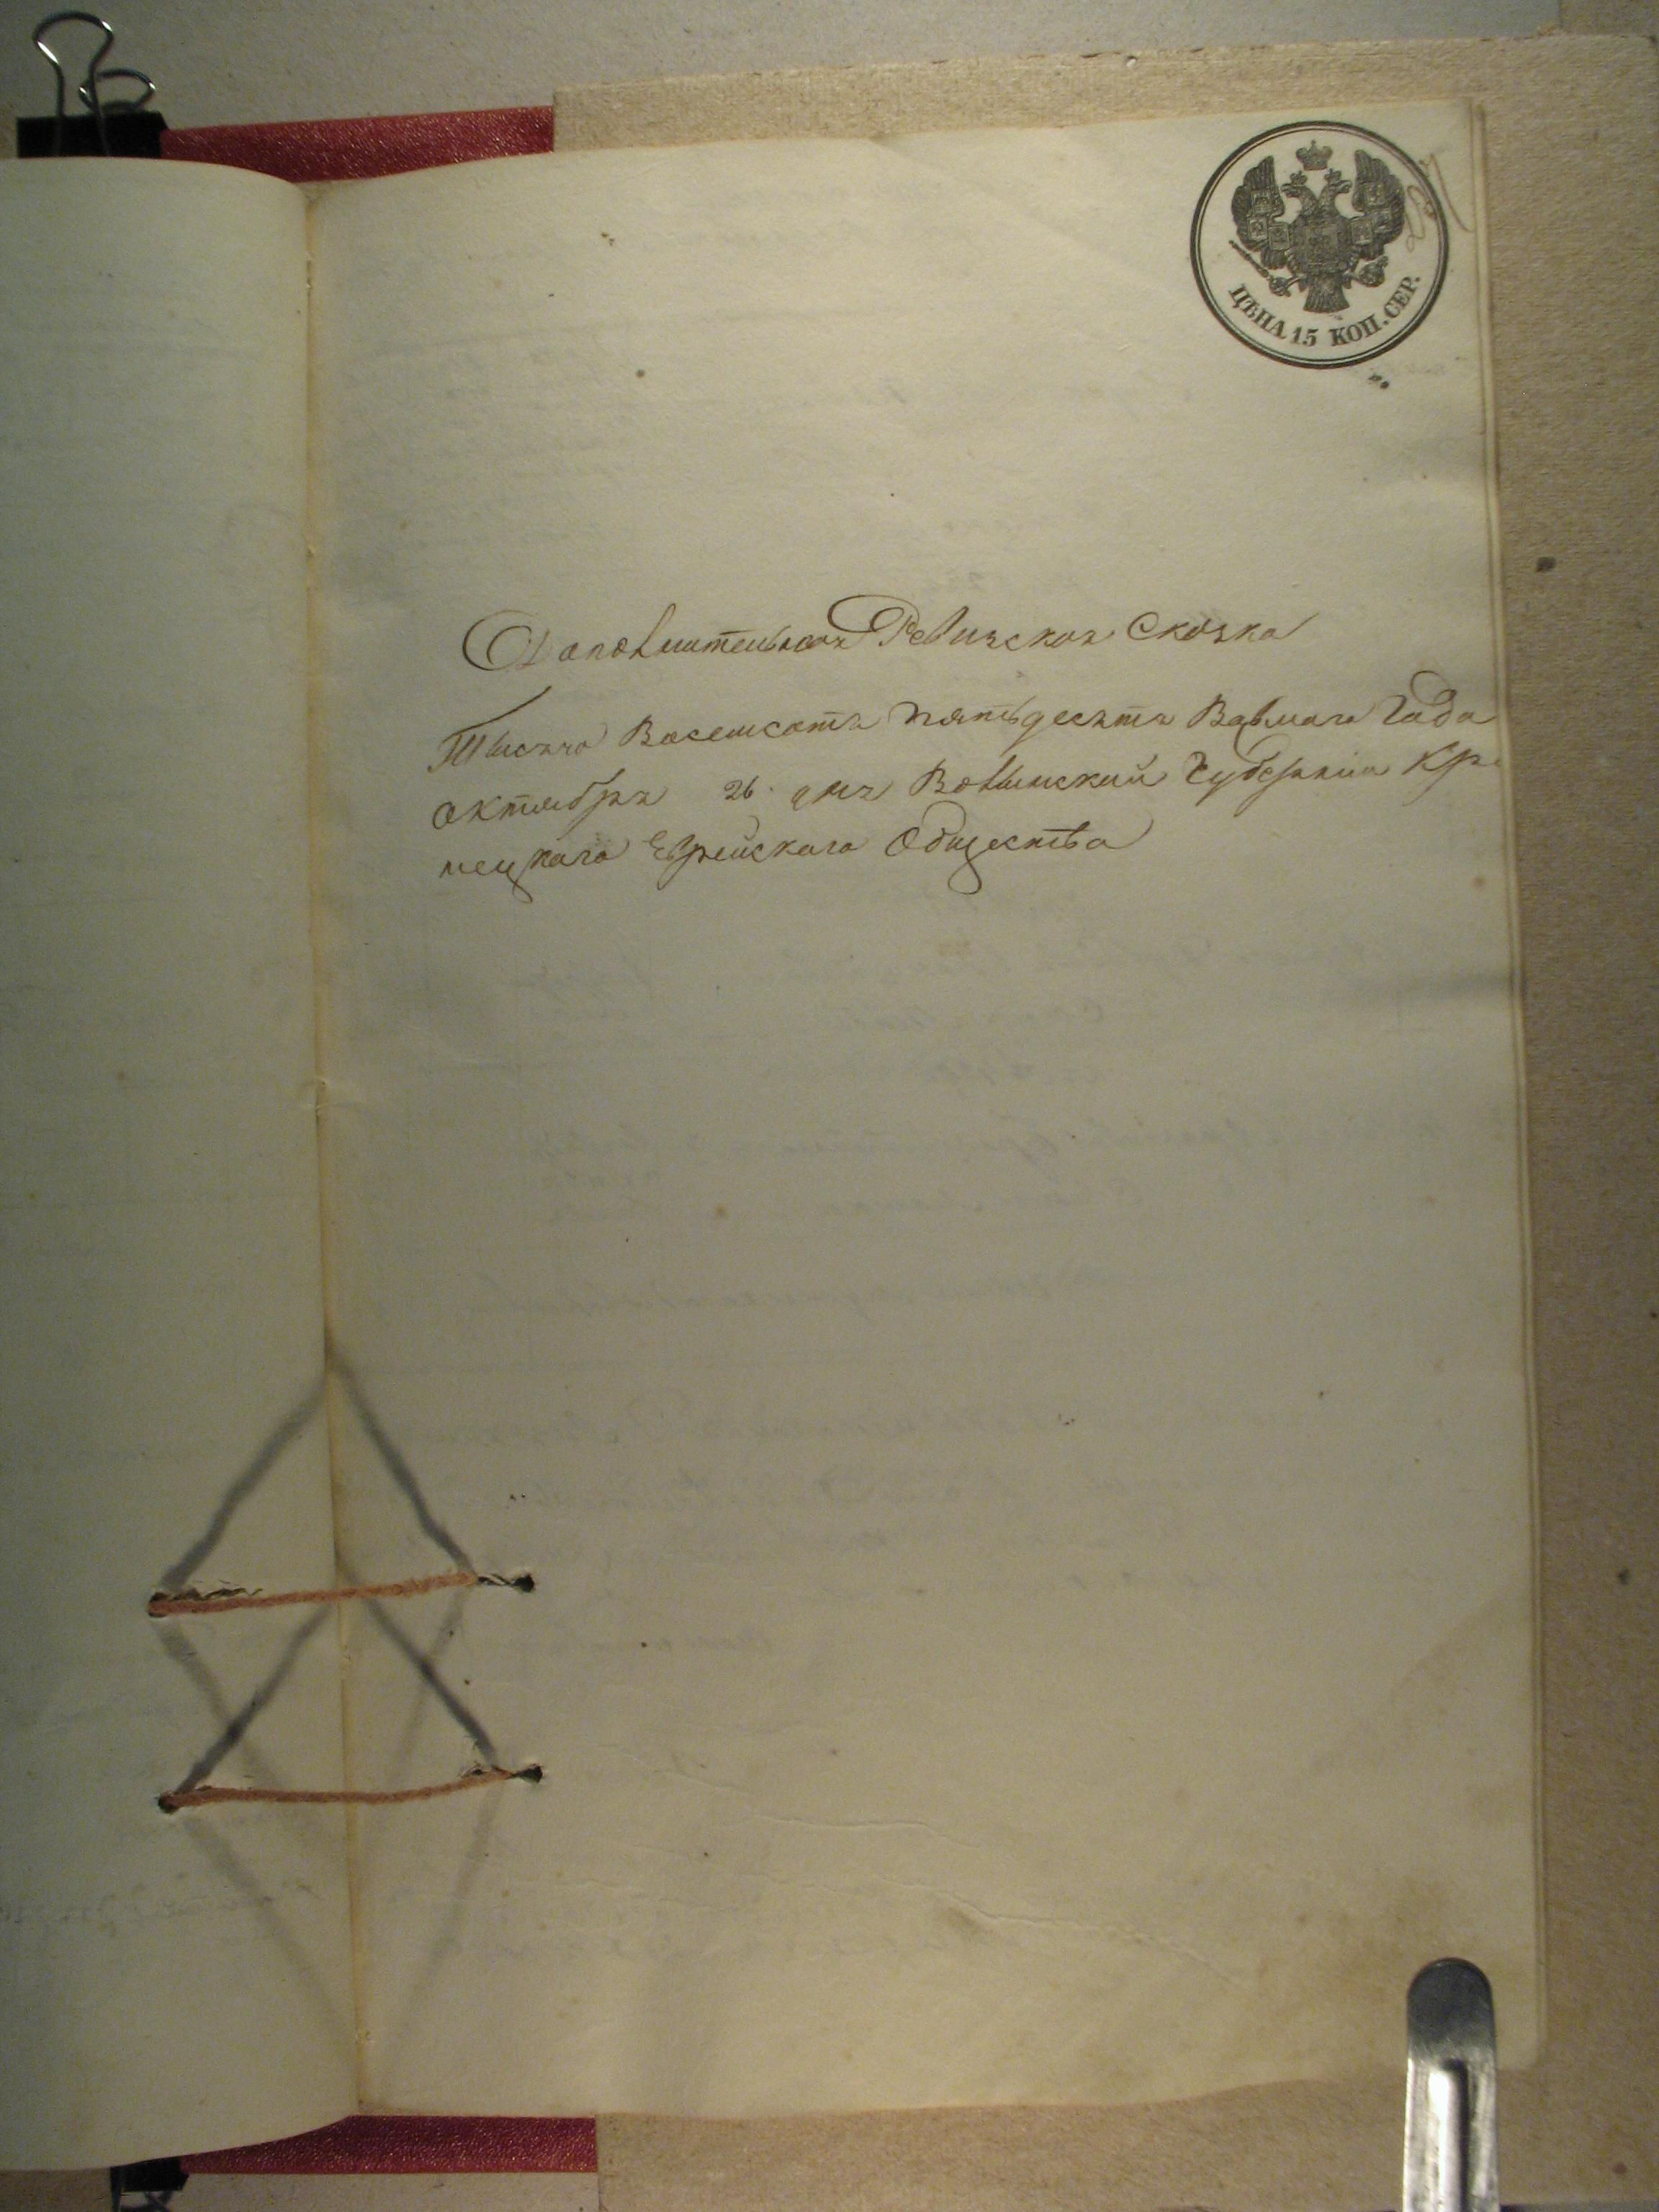 ЦѢНА 15 КОП. СЕР.
Дополнительная Ревизская Сказка
Тысяча Восемсотъ пятьдесятъ Восмаго Года
октября 26 дня Волынской Губерніи Кре
нецкаго Еврейскаго Общества